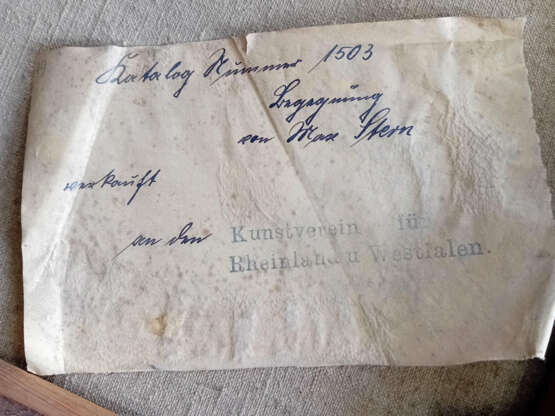 Katalog Nummer 1503
Begegnung
von Max Stern
verkauft
an den Kunstverein für
Rheinland u Westfalen.